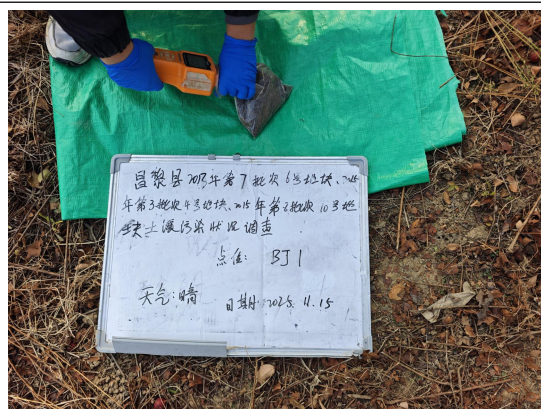 昌黎县2013年第7批次6号地块、2025
年第3批次4号地块、2015年第2批次10号地
块土壤污染状况调查
点位: BJ1
天气:晴 日期:2025.11.15